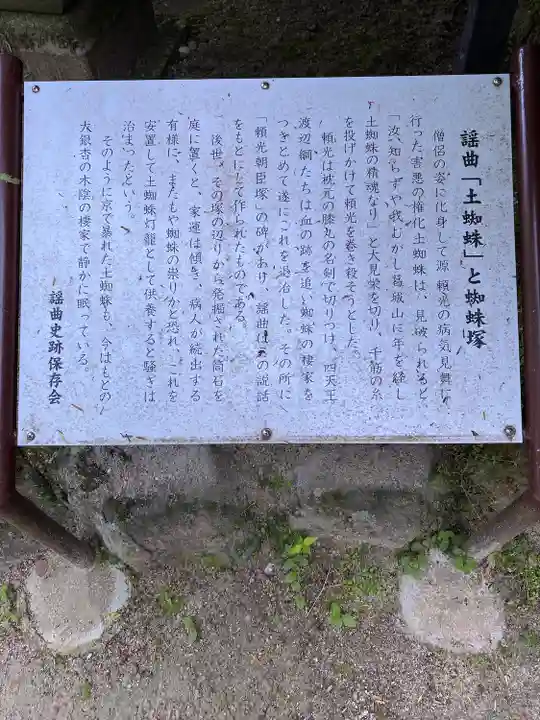 謡曲「土蜘蛛」と蜘蛛塚
僧侶の姿に化身して源 頼光の病気見舞に
行った害悪の権化土蜘蛛は、見破られると、
「汝、知らずや我、むかし葛城山に年を経し
土蜘蛛の精魂なり」と大見栄を切り、千筋の糸
を投げかけて頼光を巻き殺そうとした。
頼光は枕元の膝丸の名剣で切りつけ、四天王
渡辺綱たちは血の跡を追い蜘蛛の棲家を
つきとめて遂にこれを退治した。その所に
「頼光朝臣塚」の碑があり、謡曲はこの説話
をもとにして作られたものである。
後世、その塚の辺りから発掘された筒石を
庭に置くと、家運は傾き、病人が続出する
有様に、またもや蜘蛛の祟りかと恐れ、これを
安置して土蜘蛛灯籠として供養すると騒ぎは
治まったという。
そのように京で暴れた土蜘蛛も、今はもとの
大銀杏の木陰の棲家で静かに眠っている。
謡曲史跡保存会